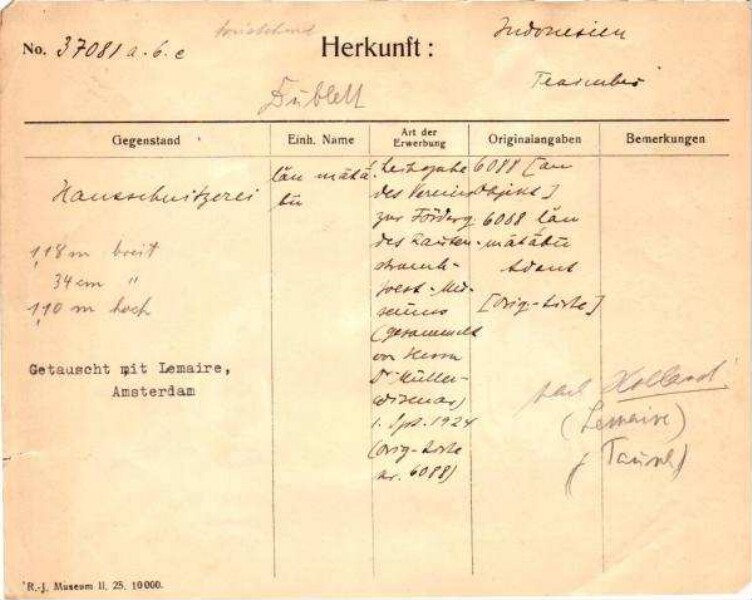 No. 37081 a. b. c
Herkunft :
Indonesien
Dublett
Gegenstand
Einh. Name
Art der
Erwerbung
Originalangaben
Bemerkungen
Hausschnitzerei
1,18 m breit
34 cm "
1,10 m hoch
Getauscht mit Lemaire,
Amsterdam
län mätä
bü
Leihgabe
des Vereins
zur Förderg
des Rauten-
strauch-
Joest-Mu-
seums
(gesammelt
von Herrn
Dr Müller-
Wismar)
1. Spt. 1924
(Orig-Liste
nr. 6088)
6088 [an
Objekt]
6068 län
mätäbü
[Orig-Liste]
nach Holland
(Lemaire)
(Tausch)
R.-J. Museum II. 25. 10000.